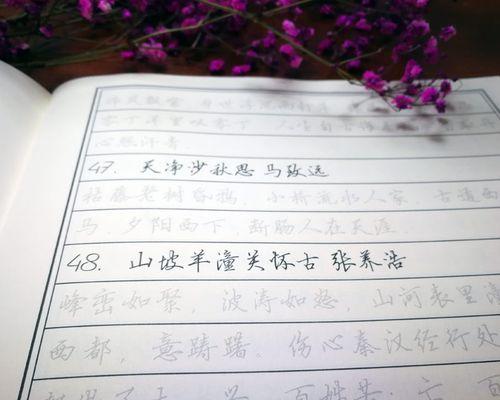 零丁洋里叹零丁 人生自古谁
心照汗青
47. 天净沙秋思 马致远
枯藤老树昏鸦, 小桥流水人家, 古道西
马, 夕阳西下, 断肠人在天涯.
48. 山坡羊潼关怀古 张养浩
峰峦如聚, 波涛如怒, 山河表里潼
西都, 意踌躇. 伤心秦汉经行处